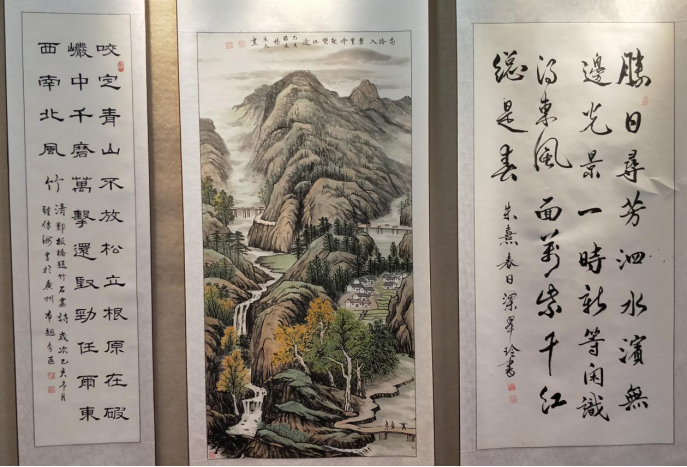 勝日尋芳泗水濱無
邊光景一時新等閑識
得東風面萬紫千紅
總是春 朱熹春日梁翠玲書
咬定青山不放松立根原在破
巖中千磨萬擊還堅勁任爾東
西南北風 竹
清鄭板橋題竹石畫詩 歲次己亥冬月
書於廣州